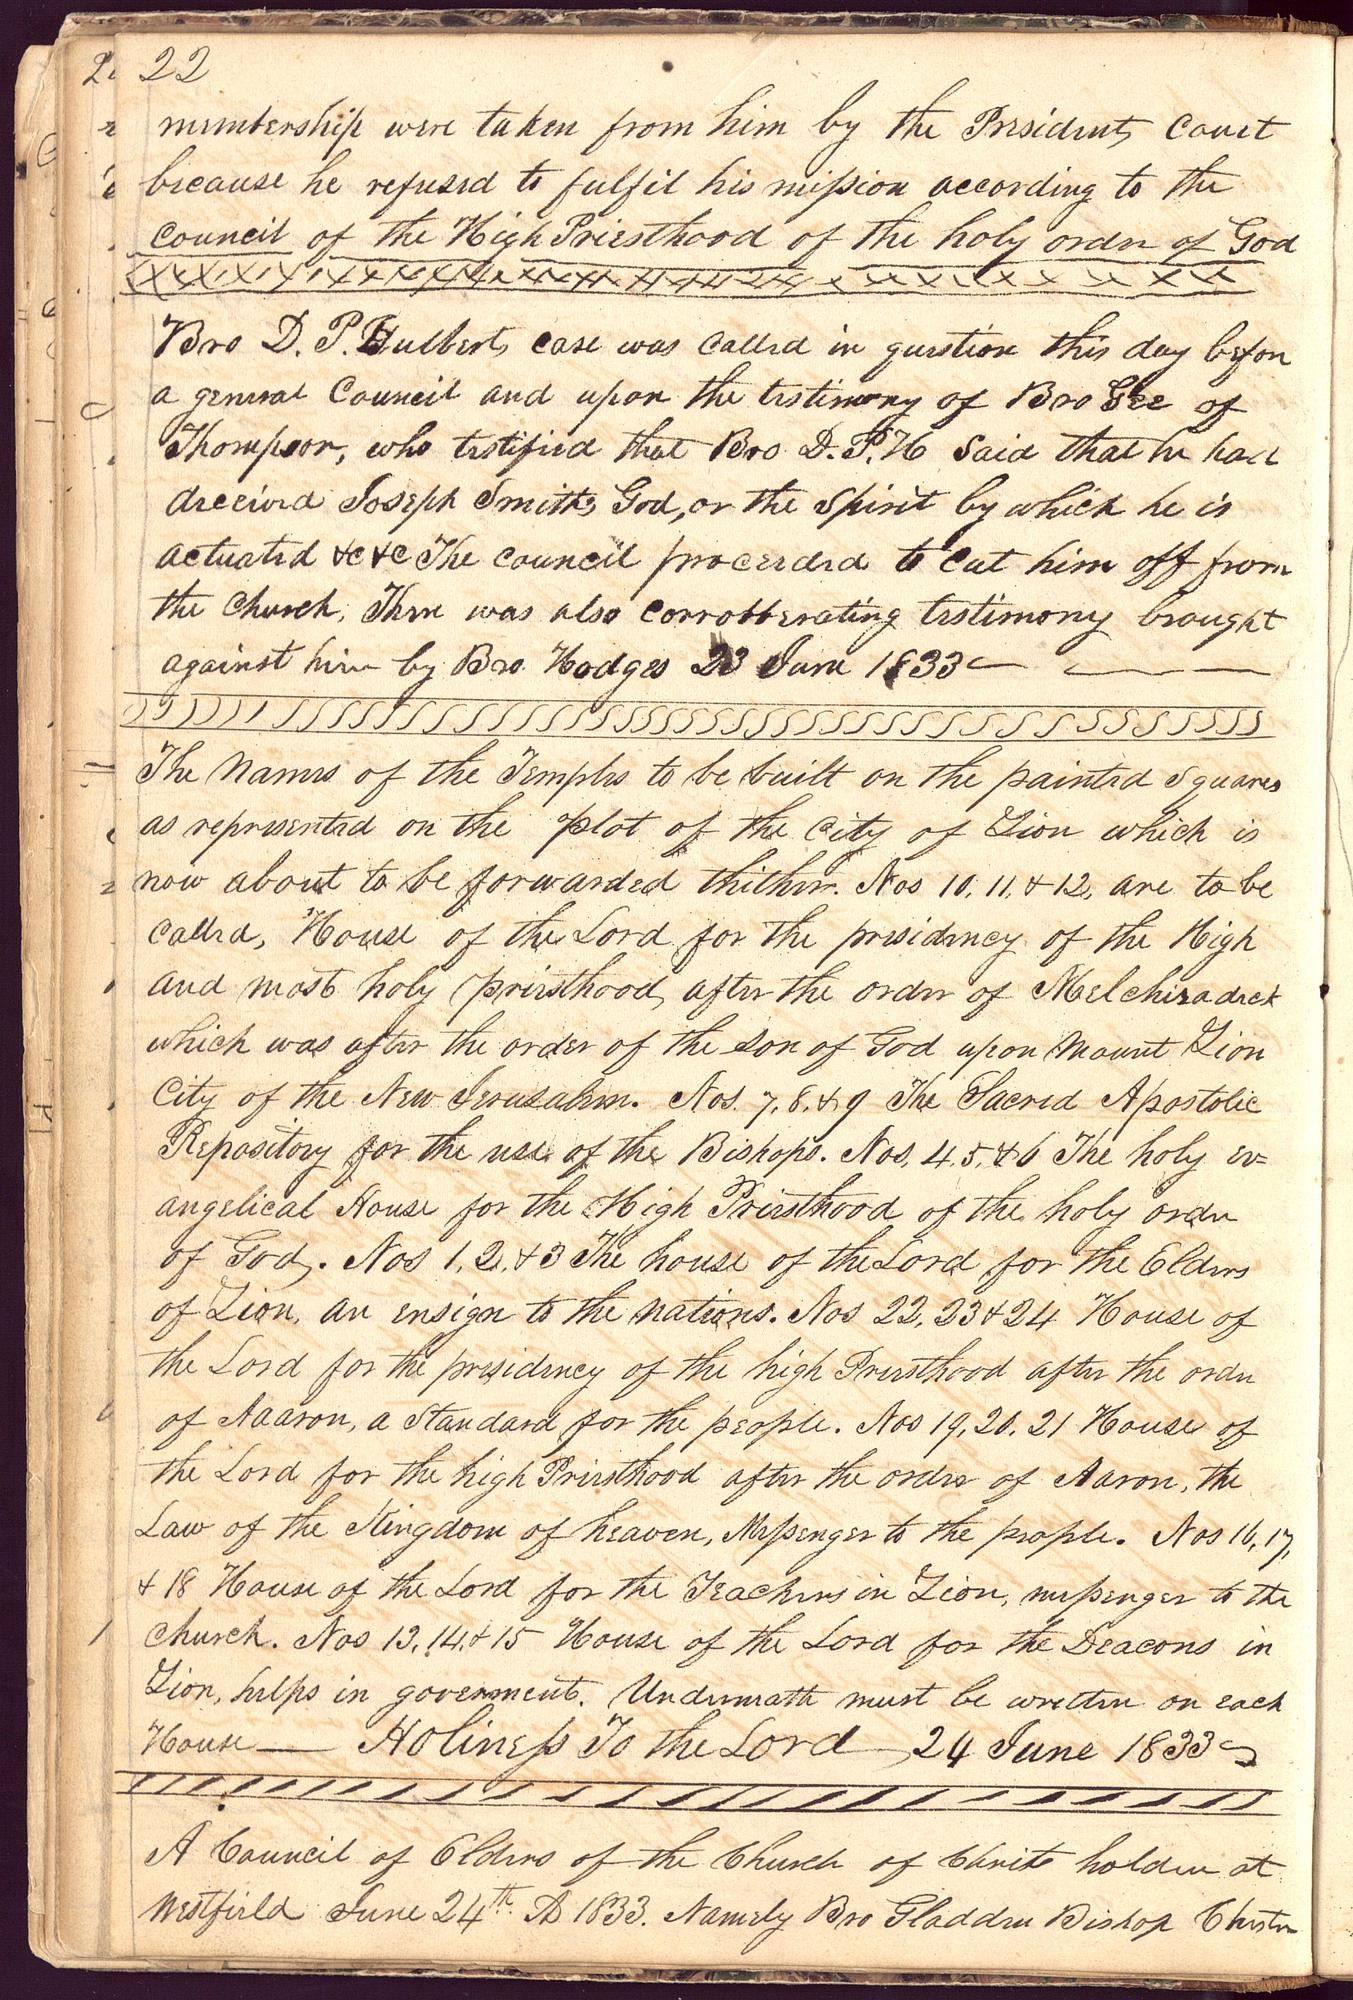 22
membership were taken from him by the Presidents Court
because he refused to fulfil his mission according to the
council of the High Priesthood of the holy order of God
Bro D. P. Hulberts case was called in question this day before
a general Council and upon the testimony of Bro Gee of
Thompson, who testified that Bro D. P. H said that he had
deceived Joseph Smiths God, or the spirit by which he is
actuated &c &c The council proceeded to cut him off from
the Church. There was also corrobberating testimony brought
against him by Bro Hodges 23 June 1833
The names of the Temples to be built on the painted squares
as represented on the plot of the city of Zion which is
now about to be forwarded thither. Nos 10. 11. & 12. are to be
called, House of the Lord for the presidency of the High
and most holy priesthood, after the order of Melchizadeck
which was after the order of the son of God upon Mount Zion
City of the New Jerusalem. Nos. 7, 8, & 9 The Sacred Apostolic
Repository for the use of the Bishops. Nos, 4. 5, & 6 The holy ev=
angelical House for the High Priesthood of the holy order
of God. Nos 1, 2, & 3 The house of the Lord for the Elders
of Zion, an ensign to the nations. Nos 22, 23 & 24 House of
the Lord for the presidency of the high Priesthood after the order
of Aaaron, a standard for the people. Nos 19, 20, 21 House of
the Lord for the high Priesthood after the order of Aaron, the
Law of the Kingdom of heaven, Messenger to the people. Nos 16, 17,
& 18 House of the Lord for the Teachers in Zion, messenger to the
Church. Nos 13, 14, & 15 House of the Lord for the Deacons in
Zion, helps in goverment. Underneath must be written on each
House — Holiness To the Lord — 24 June 1833
A Council of Elders of the Church of Christ holden at
Westfield June 24th AD 1833. Namely Bro Gladden Bishop Chester